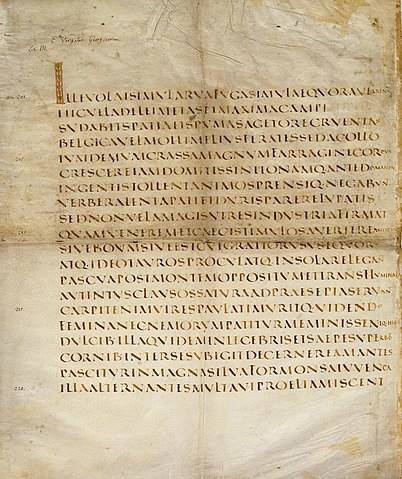 E Virgilii Georgicon
Lib. III.
ILLEVOLATSIMVLARVAFVGASIMVLAEQVORAVERRENS
HICVELADELEIMETASETMAXIMACAMPI
SVDABITSPATIAETSPVMASAGETORECRVENTAS
BELGICAVELMOLLIMELIVSFERETESSEDACOLLO
TVMDEMVMCRASSAMAGNVMFARRAGINECORPVS
CRESCEREIAMDOMITISSINITONAMQ·ANTEDOMANDVM
INGENTISTOLLENTANIMOSPRENSIQ·NEGABVNT
VERBERALENTAPATIETDVRISPARERELVPATIS
SEDNONVLLAMAGISVIRESINDVSTRIAFIRMAT
QVAMVENEREMETCAECISTIMVLOSAVERTEREAMORIS
SIVEBOVMSIVEESTCVIGRATIORVSVSEQVORVM
ATQ·IDEOTAVROSPROCVLATQ·INSOLARELEGANT
PASCVAPOSTMONTEMOPPOSITVMETTRANSFLVMINALATA
AVTINTVSCLAVSOSSATVRAADPRAESEPIASERVANT
CARPITENIMVIRESPAVLATIMVRITQ·VIDENDO
FEMINANECNEMORVMPATITVRMEMINISSENECHERBAE
DVLCIBVSILLAQVIDEMINLECEBRISETSAEPESVPERBOS
CORNIB·INTERSESVBIGITDECERNEREAMANTES
PASCITVRINMAGNASILVAFORMONSAIVVENCA
ILLIALTERNANTESMVLTAVIPROELIAMISCENT